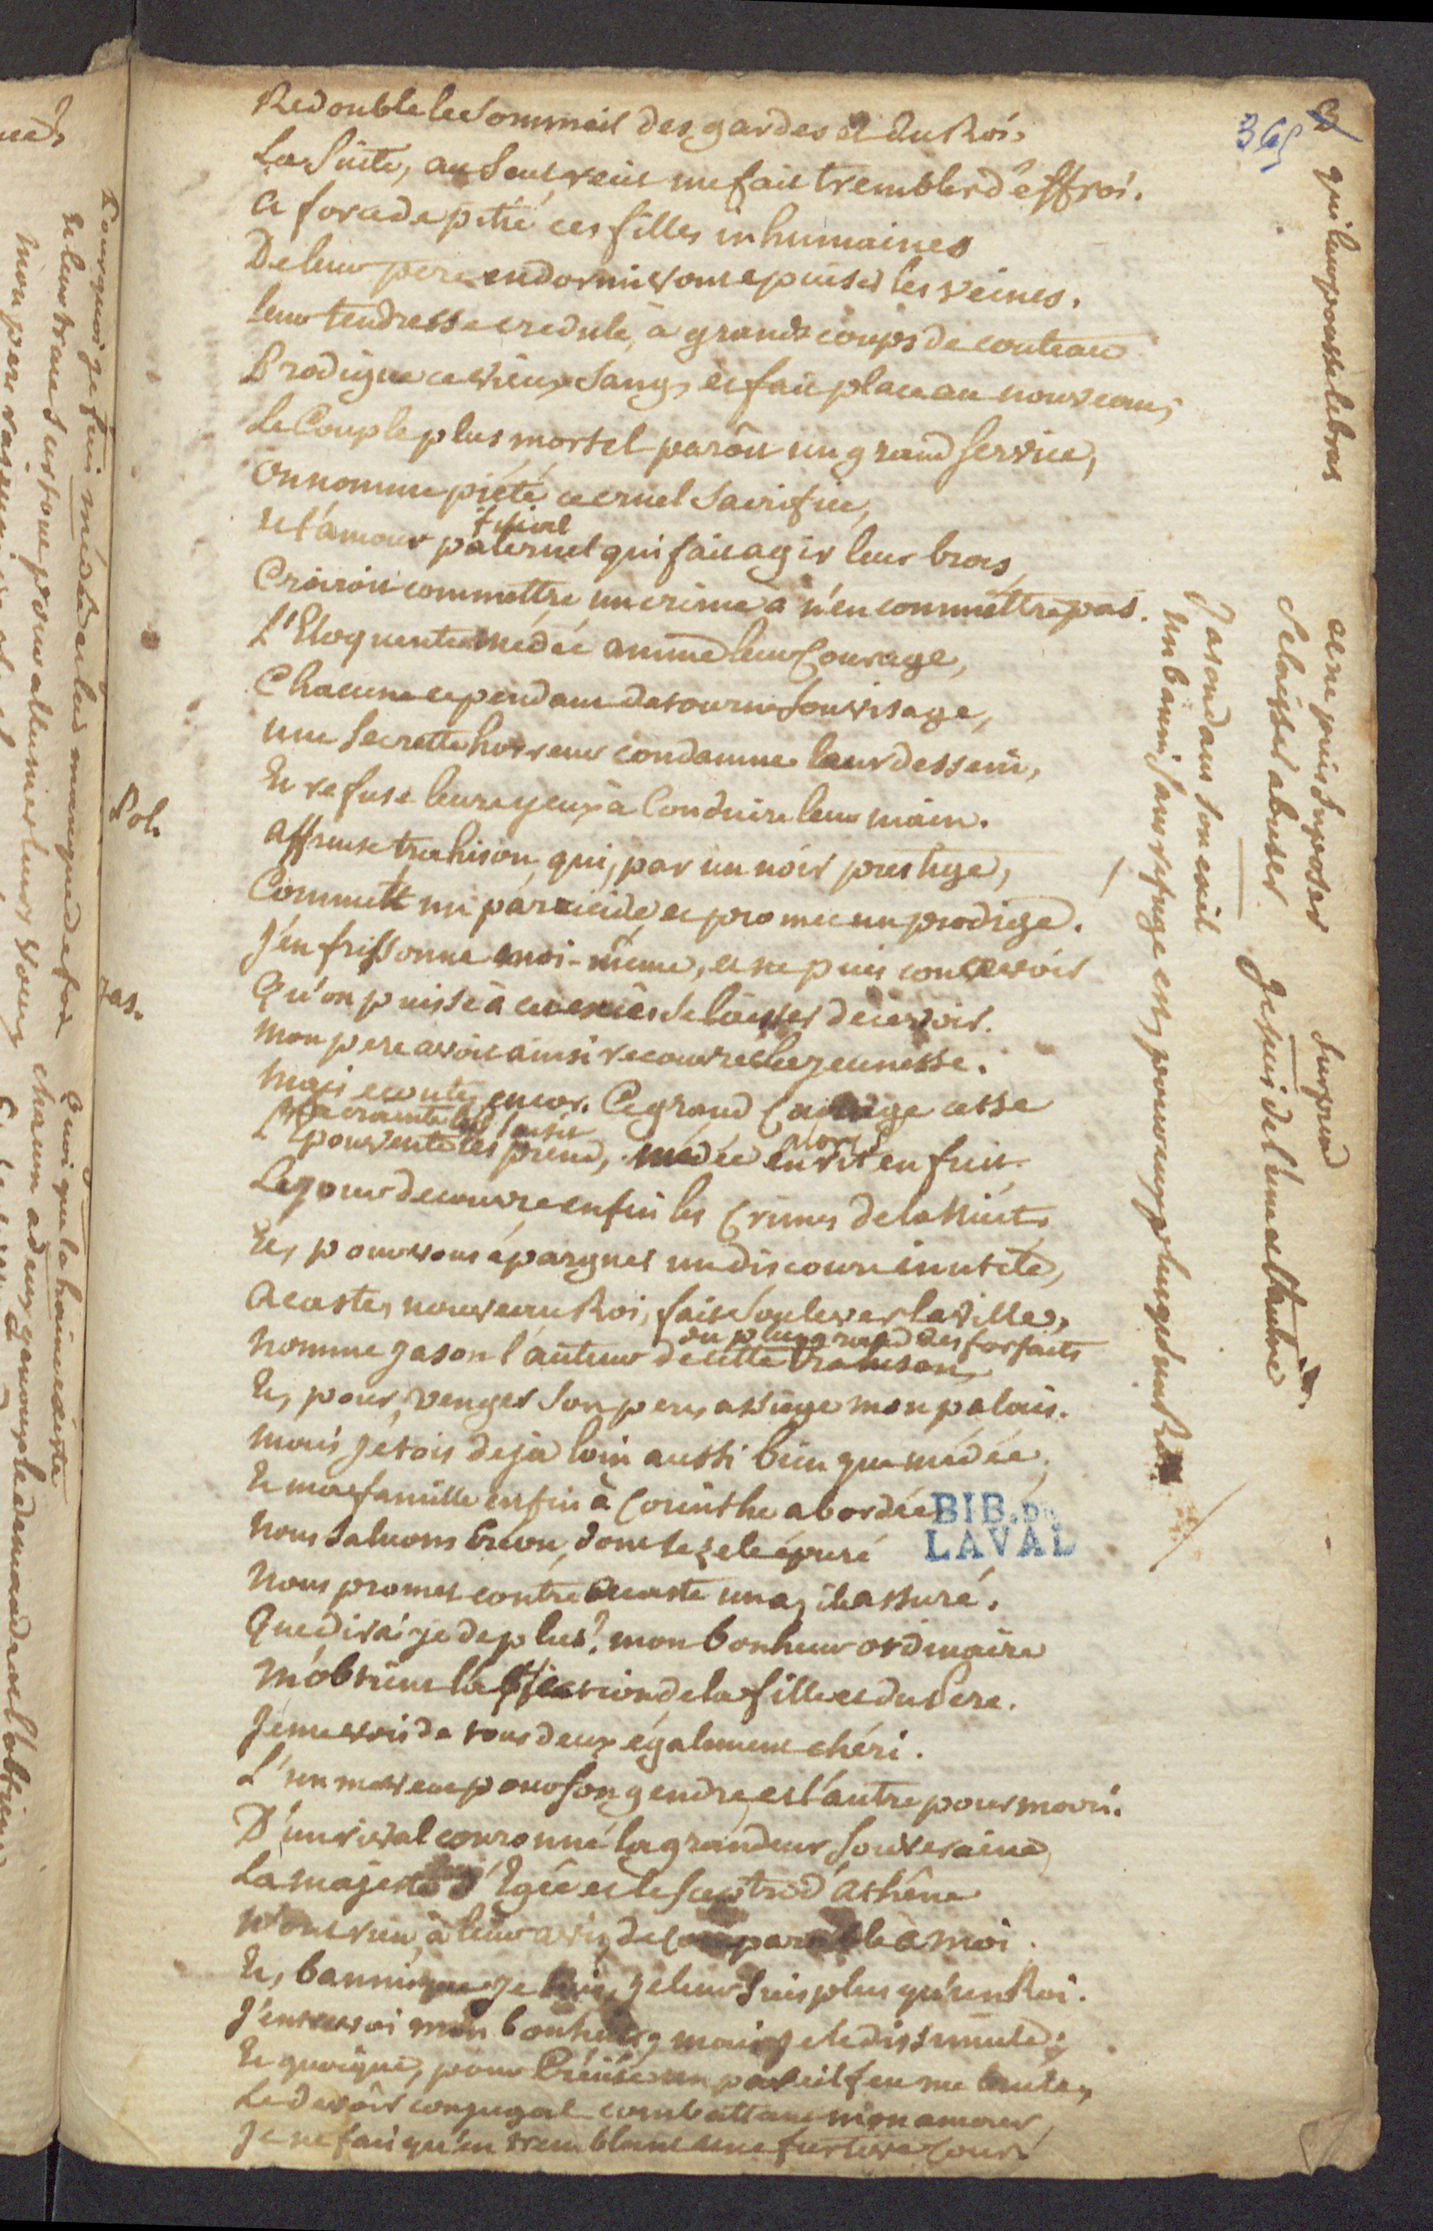 365
Redouble le Sommeil des gardes et du Roi.
La Suite, au Seul recit me fait trembler d'éffroi.
A force de pitié ces filles inhumaines
De leur pere endormi vont epuiser les veines.
leur tendresse credule, à grands coups de couteau
Prodigue ce vieux Sang, et fait place au nouveau;
Le Coup le plus mortel paroît un grand Service,
On nomme piété ce cruel Sacrifice,
Et l'amour paternel qui fait agir leur bras
filial
Croiroit commettre un crime à n'en commettre pas.
L'Eloquente Médée anime leur Courage,
Chacune cependant detourne Son visage,
Une Secrette horreur condamne leur dessein,
Et refuse leurs yeux à Conduire leur main.
Pol.
Affreuse trahison, qui, par un noir prestige,
Commet un parricide et promet un prodige.
J'en frissonne moi-même, et ne puis concevoir
Qu'on puisse à cet excès Se laisser decevoir.
Jas.
Mon pere avoit ainsi recouvré la jeunesse.
Mais ecoutez encor. Ce grand Courage cesse
L'Epouvente les prend, Médée en rit en fuit.
la crainte les Saisit
alors
Le jour decouvre enfin les Crimes de la Nuit.
Et, pour vous épargner un discours inutile,
Acaste, nouveau Roi, fait Soulever la ville,
Nomme Jason l'auteur de cette trahison,
du plus grand des forfaits
Et, pour venger Son pere, assiege mon palais.
Mais j'etois deja loin aussi bien que Médée,
Et ma famille enfin à Corinthe abordée
Nous Saluons Creon, dont le zele épuré
Nous promet contre Acaste un azile assuré.
Que dirai-je de plus? mon bonheur ordinaire
M'obtient l'affection de la fille et du Pere.
Je me vois de tous deux également chéri.
L'un me veut pour Son gendre, et l'autre pour mari.
D'un rival couronné la grandeur Souveraine,
La majesté d'Egée et le Sceptre d'Athêne
N'ont rien, à leur avis, de comparable à moi.
Et, banni que je suis, je leur Suis plus qu'un Roi.
J'entrevoi mon bonheur, mais je le dissimule;
Et quoique, pour Créüse un pareil feu me brule,
Le devoir conjugal combattant mon amour,
Je ne fais qu'en tremblant une furtive Cour.
qui leur pousse le bras
et ne puis Suposer
Se laisser abuser
Jason dans Son exil
Un banni Sans refuge est, pour eux, plus qu'un Roi
Surprend
Je suis de l'une et l'autre
BIB. DE
LAVAL
Pourquoi je fuis Médée
mon pere